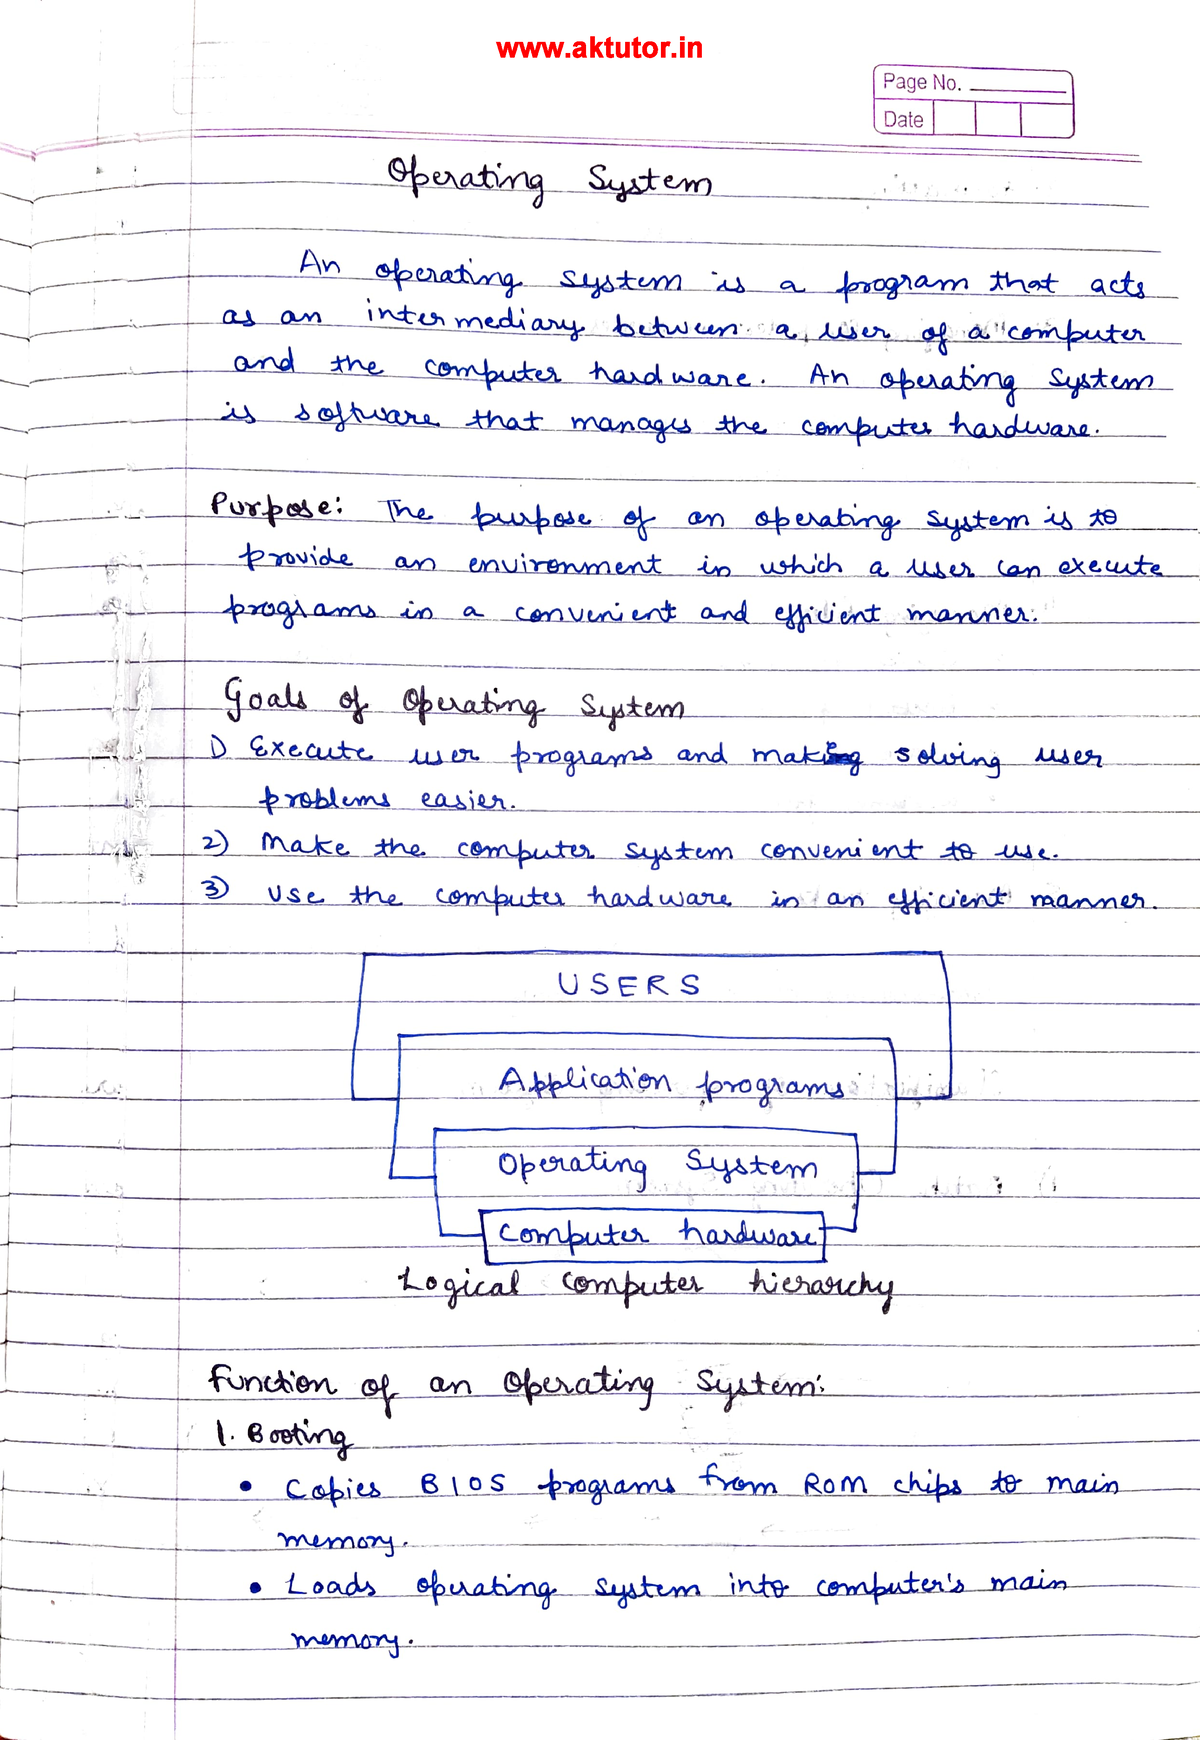 www.aktutor.in
Page No.
Date
Operating System
An operating system is a program that acts
as an intermediary between a user of a computer
and the computer hardware. An operating system
is software that manages the computer hardware.
Purpose: The purpose of an operating system is to
provide an environment in which a user can execute
programs in a convenient and efficient manner.
Goals of Operating System
1) Execute user programs and making solving user
problems easier.
2) Make the computer system convenient to use.
3) Use the computer hardware in an efficient manner.
USERS
Application programs
Operating System
Computer hardware
Logical computer hierarchy
Function of an Operating System:
1. Booting
• Copies BIOS programs from ROM chips to main
memory.
• Loads operating system into computer's main
memory.